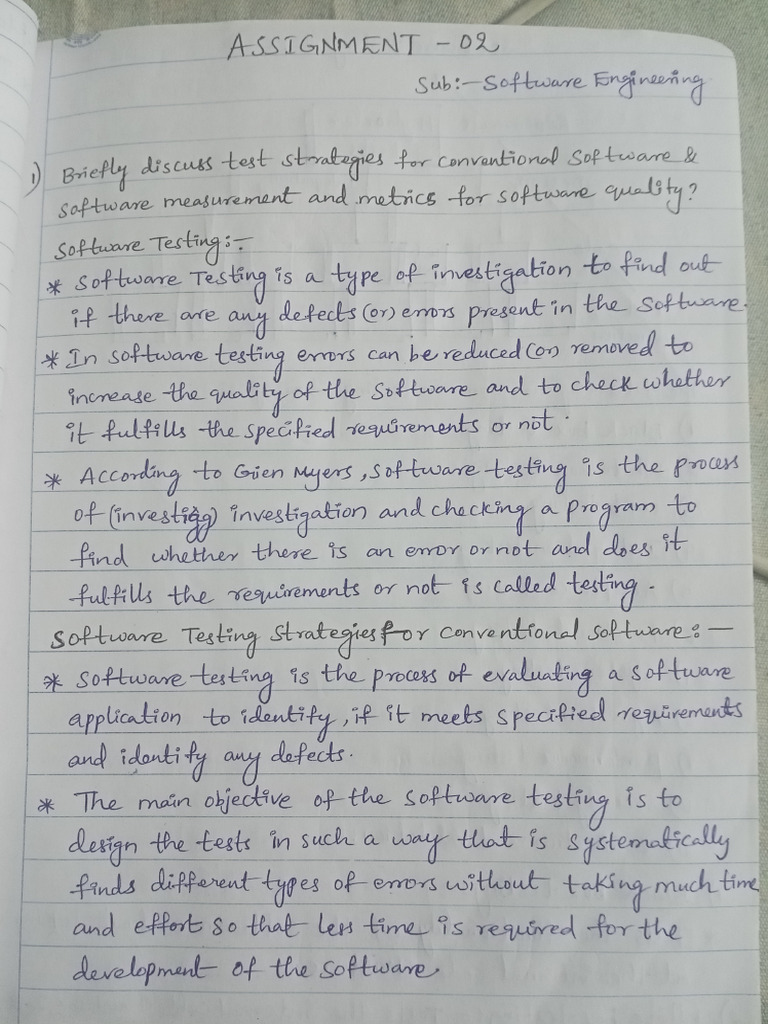 ASSIGNMENT - 02
Sub:- Software Engineering
1) Briefly discuss test strategies for conventional software &
software measurement and metrics for software quality?
Software Testing:-
* Software Testing is a type of investigation to find out
if there are any defects (or) errors present in the software.
* In software testing errors can be reduced (or) removed to
increase the quality of the software and to check whether
it fulfills the specified requirements or not.
* According to Glen Myers, software testing is the process
of (investigg) investigation and checking a program to
find whether there is an error or not and does it
fulfills the requirements or not is called testing.
Software Testing Strategies For conventional software:-
* Software testing is the process of evaluating a software
application to identify, if it meets specified requirements
and identify any defects.
* The main objective of the software testing is to
design the tests in such a way that is systematically
finds different types of errors without taking much time
and effort so that less time is required for the
development of the software.